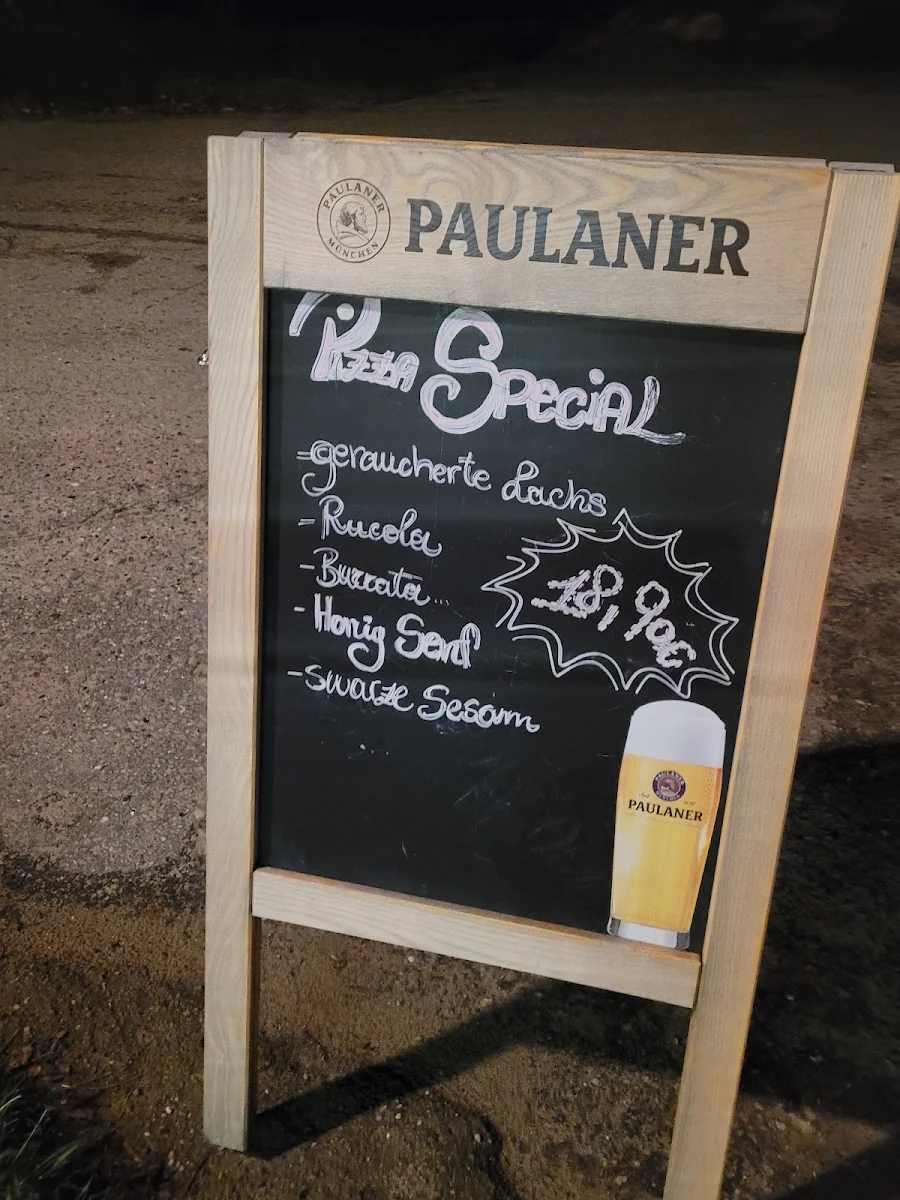 PAULANER
MÜNCHEN
PAULANER
Pizza Special
- geraucherte Lachs
- Rucola
- Burrata...
- Honig Senf
- swarze Sesam
18,90€
PAULANER
MÜNCHEN
PAULANER